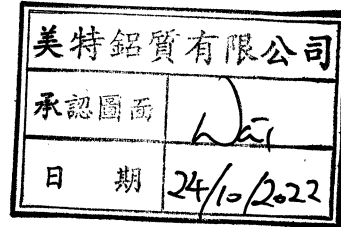 美特鋁質有限公司
承認圖面 Wai
日期 24/10/2022